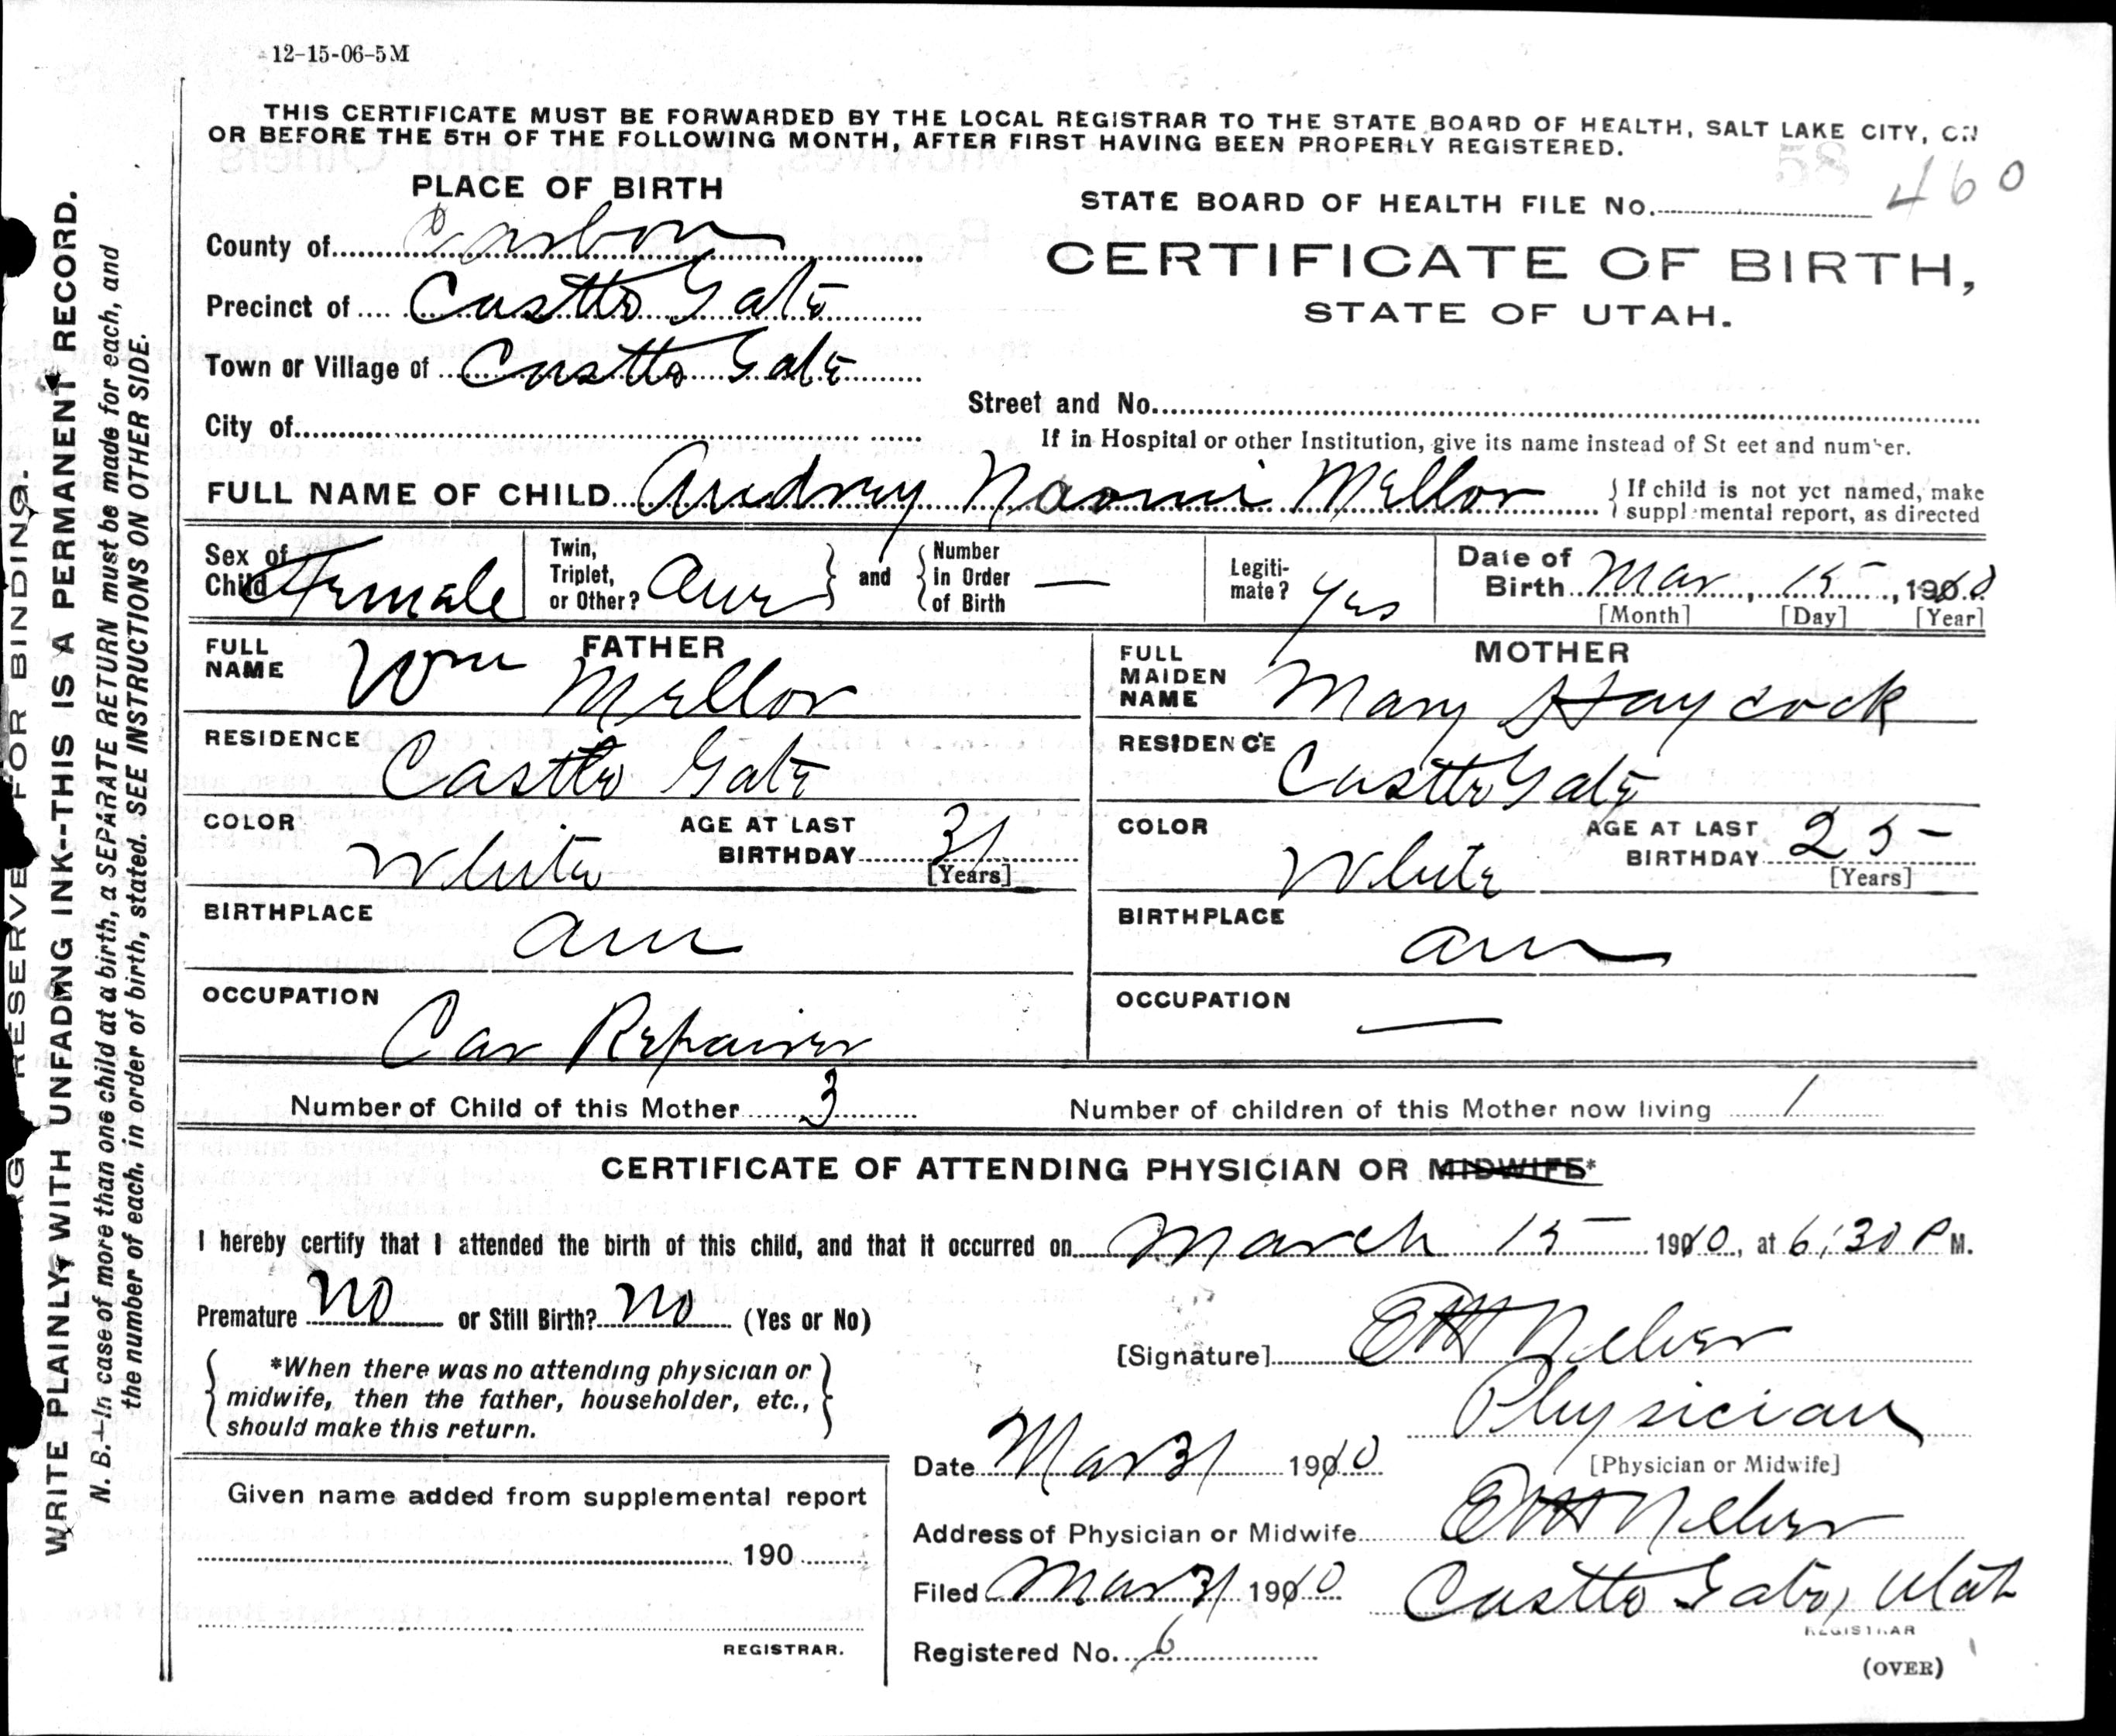 12-15-06-5M
THIS CERTIFICATE MUST BE FORWARDED BY THE LOCAL REGISTRAR TO THE STATE BOARD OF HEALTH, SALT LAKE CITY, ON
OR BEFORE THE 5TH OF THE FOLLOWING MONTH, AFTER FIRST HAVING BEEN PROPERLY REGISTERED.
58
PLACE OF BIRTH
STATE BOARD OF HEALTH FILE No. 460
County of Carbon
CERTIFICATE OF BIRTH,
STATE OF UTAH.
Precinct of Castle Gate
Town or Village of Castle Gate
Street and No.
City of
If in Hospital or other Institution, give its name instead of St eet and number.
FULL NAME OF CHILD Audrey Naomi Mellor
If child is not yet named, make
suppl mental report, as directed
Sex of
Child Female
Twin,
Triplet,
or Other?
and
Number
in Order
of Birth —
Legiti-
mate? Yes
Date of
Birth Mar 15, 1910
[Month] [Day] [Year]
FATHER
FULL
NAME Wm Mellor
MOTHER
FULL
MAIDEN
NAME Mary Haycock
RESIDENCE Castle Gate
RESIDENCE Castle Gate
COLOR White
AGE AT LAST
BIRTHDAY 31
[Years]
COLOR White
AGE AT LAST
BIRTHDAY 25
[Years]
BIRTHPLACE Am
BIRTHPLACE Am
OCCUPATION Car Repairer
OCCUPATION —
Number of Child of this Mother 3
Number of children of this Mother now living 1
CERTIFICATE OF ATTENDING PHYSICIAN OR MIDWIFE*
I hereby certify that I attended the birth of this child, and that it occurred on March 15 1910, at 6:30 P M.
Premature No or Still Birth? No (Yes or No)
[Signature]
Physician
[Physician or Midwife]
*When there was no attending physician or
midwife, then the father, householder, etc.,
should make this return.
Date Mar 31 1910
Address of Physician or Midwife
Filed Mar 31 1910
Castle Gate, Utah
REGISTRAR
Registered No. 6
(OVER)
Given name added from supplemental report
190
REGISTRAR.
RESERVE FOR BINDING.
WRITE PLAINLY, WITH UNFADING INK--THIS IS A PERMANENT RECORD.
N. B.—In case of more than one child at a birth, a SEPARATE RETURN must be made for each, and
the number of each, in order of birth, stated. SEE INSTRUCTIONS ON OTHER SIDE.